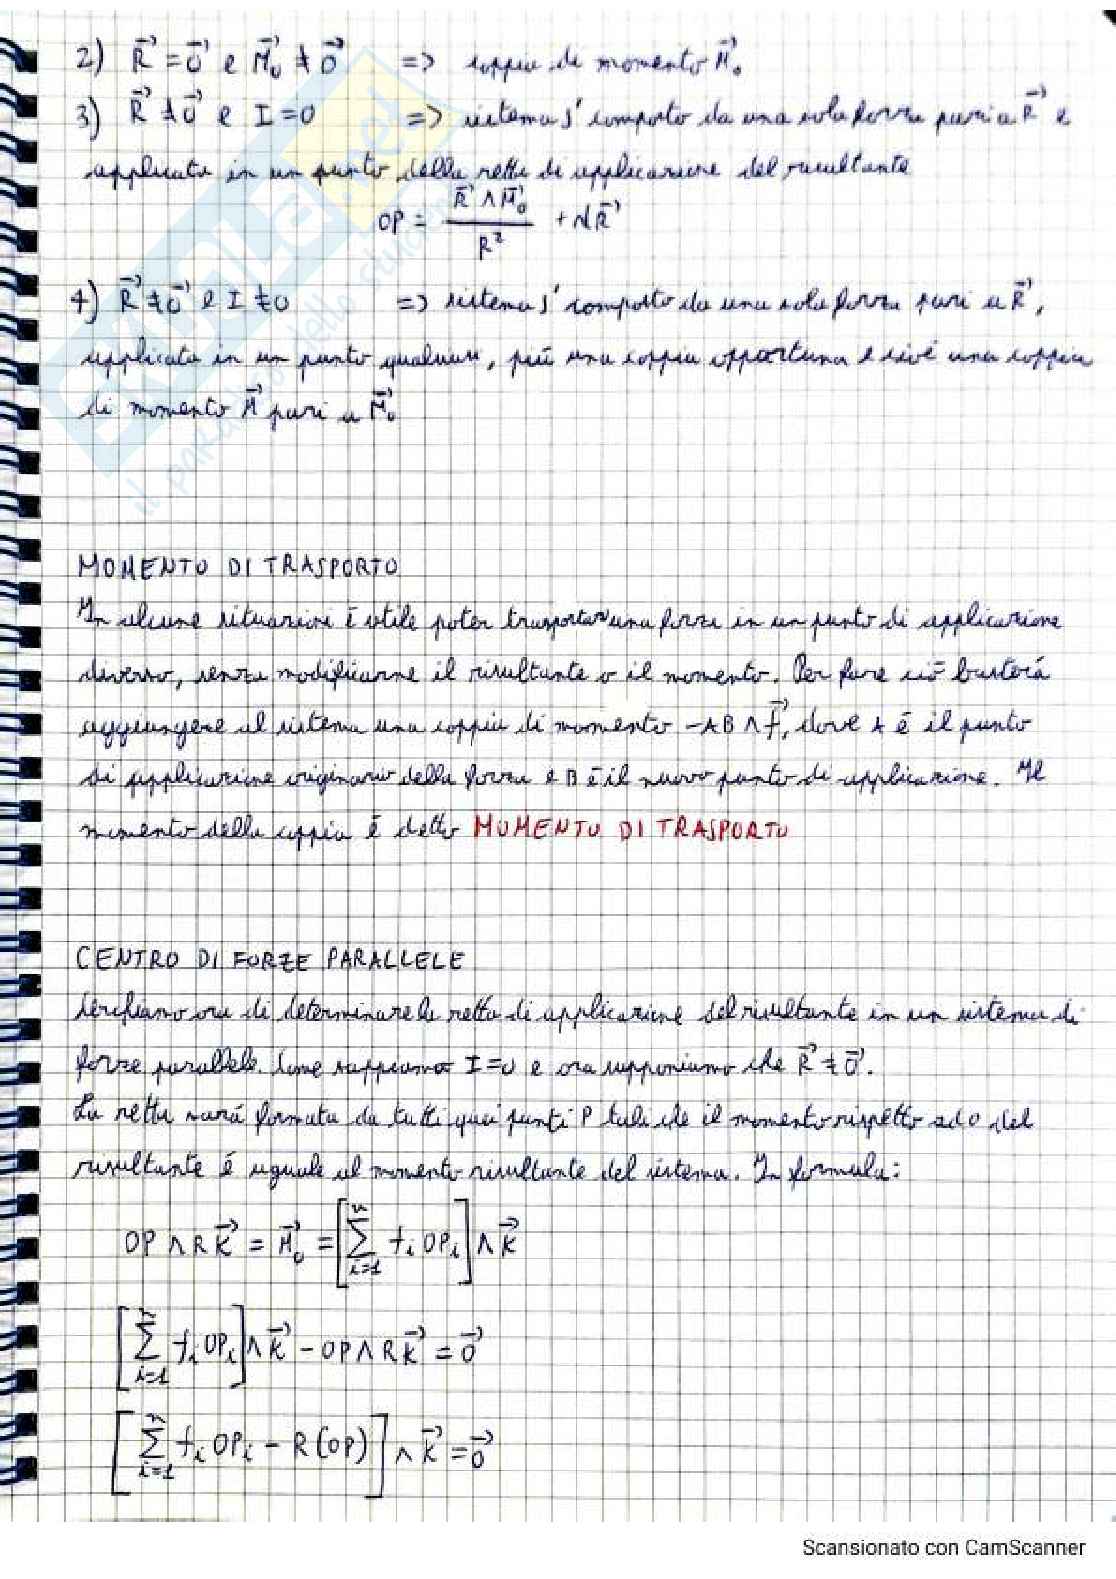 2) R⃗ = 0⃗ e M⃗₀ ≠ 0⃗ => coppia di momento M⃗₀
3) R⃗ ≠ 0⃗ e I = 0 => sistema s' composto da una sola forza pari a R⃗ e
applicata in un punto della retta di applicazione del risultante
OP = (R⃗ ∧ M⃗₀) / R² + λR⃗
4) R⃗ ≠ 0⃗ e I ≠ 0 => sistema s' composto da una sola forza pari a R⃗,
applicata in un punto qualsiasi, più una coppia opportuna e cioè una coppia
di momento M⃗ pari a M⃗₀
MOMENTO DI TRASPORTO
In alcune situazioni è utile poter trasportare una forza in un punto di applicazione
diverso, senza modificarne il risultante o il momento. Per fare ciò basterà
aggiungere al sistema una coppia di momento -AB ∧ f⃗, dove A è il punto
di applicazione originario della forza e B è il nuovo punto di applicazione. Il
momento della coppia è detto MOMENTO DI TRASPORTO
CENTRO DI FORZE PARALLELE
Cerchiamo ora di determinare la retta di applicazione del risultante in un sistema di
forze parallele. Come sappiamo I = 0 e ora supponiamo che R⃗ ≠ 0⃗.
La retta sarà formata da tutti quei punti P tali che il momento rispetto ad O del
risultante è uguale al momento risultante del sistema. In formula:
OP ∧ R k⃗ = M⃗₀ = [∑ᵢ₌₁ⁿ fᵢ OPᵢ] ∧ k⃗
[∑ᵢ₌₁ⁿ fᵢ OPᵢ] ∧ k⃗ - OP ∧ R k⃗ = 0⃗
[∑ᵢ₌₁ⁿ fᵢ OPᵢ - R(OP)] ∧ k⃗ = 0⃗
Scansionato con CamScanner
SKUOLA.net
il paradiso dello studente